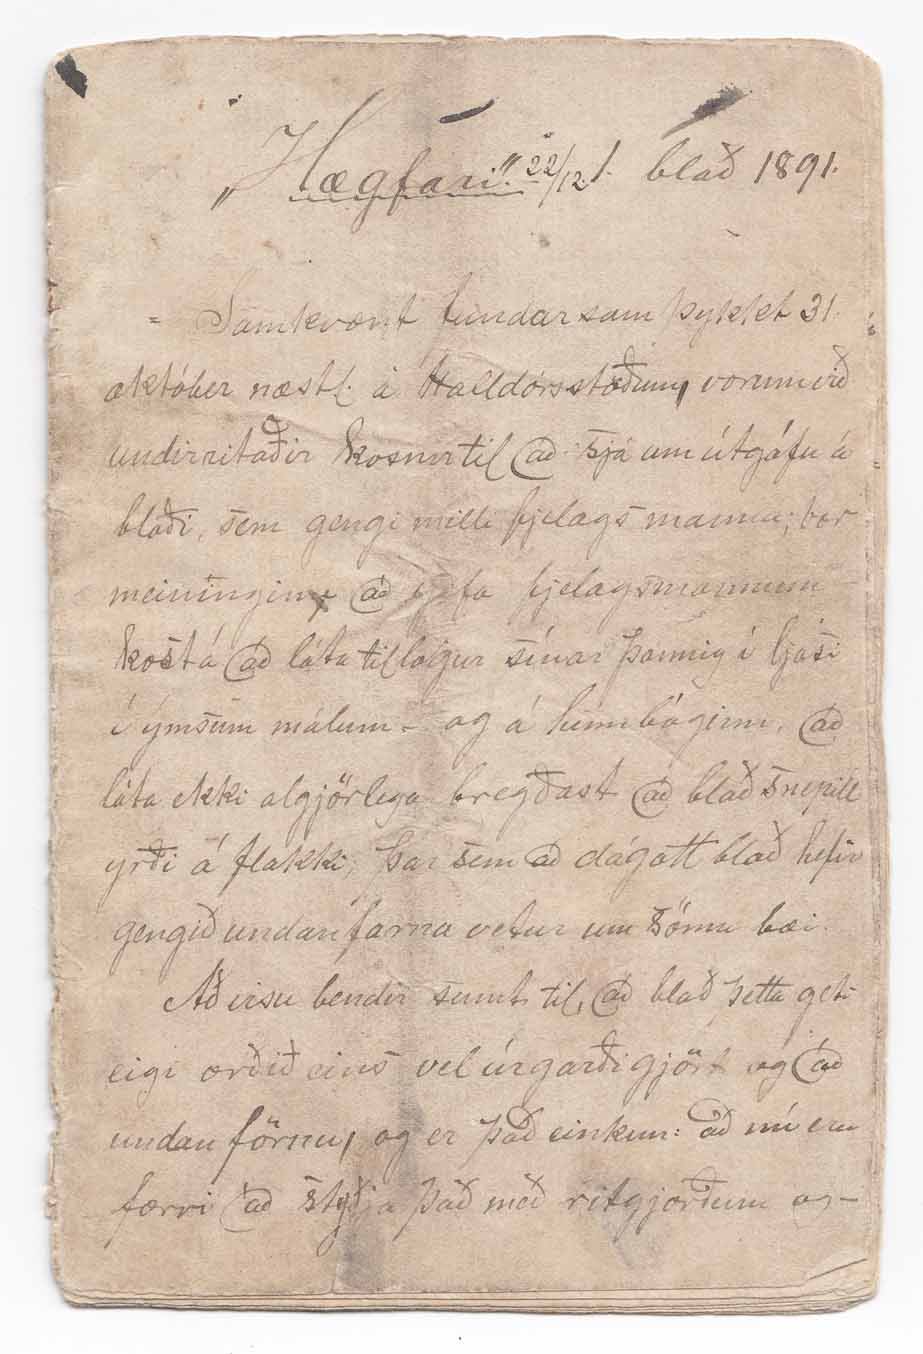 „Hægfari." 22/12. 1. blað 1891.
= Samkvæmt fundarsamþykkt 31.
október næstl. á Halldórsstöðum, vorum við
undirritaðir kosnir til að sjá um útgáfu á
blaði, sem gengi milli fjelagsmanna; var
meiningin að gefa fjelagsmönnum
kost á að láta tillögur sínar þannig í ljósi
í ýmsum málum - og á hinn bóginn, að
láta ekki algjörlega bregðast að blað snepill
yrði á flakki, þar sem að dágott blað hefir
gengið undanfarna vetur um sömu bæi.
Að vísu bendir sumt til, að blað þetta geti
eigi orðið eins vel úr garði gjört og að
undan förnu, og er það einkum: að nú eru
færri að styðja það með ritgjörðum og-